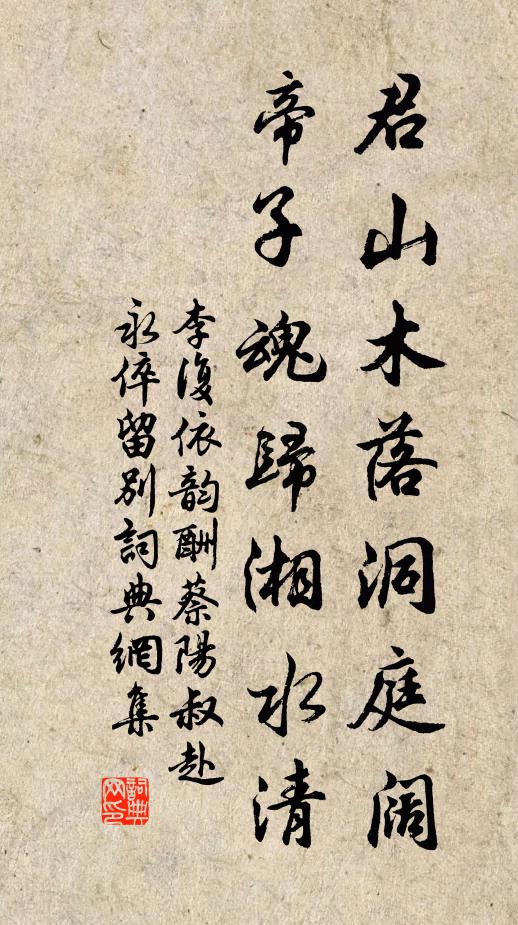 君山木落洞庭阔
帝子魂歸湘水清
李復依韵酬蔡陽叔赴
永倅留别詞典網集
詞典
网印